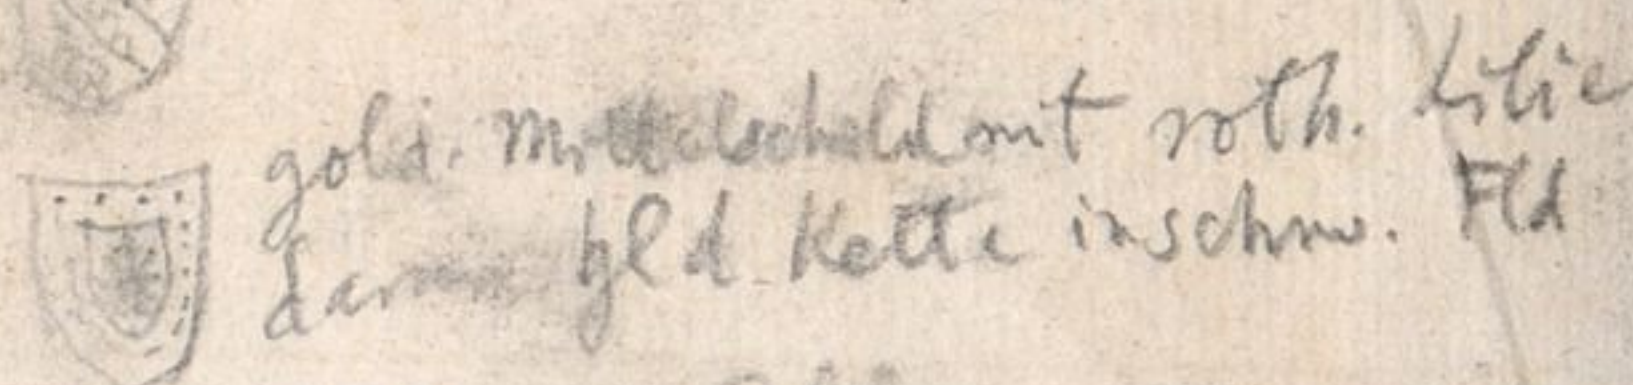 gold. Mittelschild mit roth. Lilie
darum gld Kette in schw. Fld